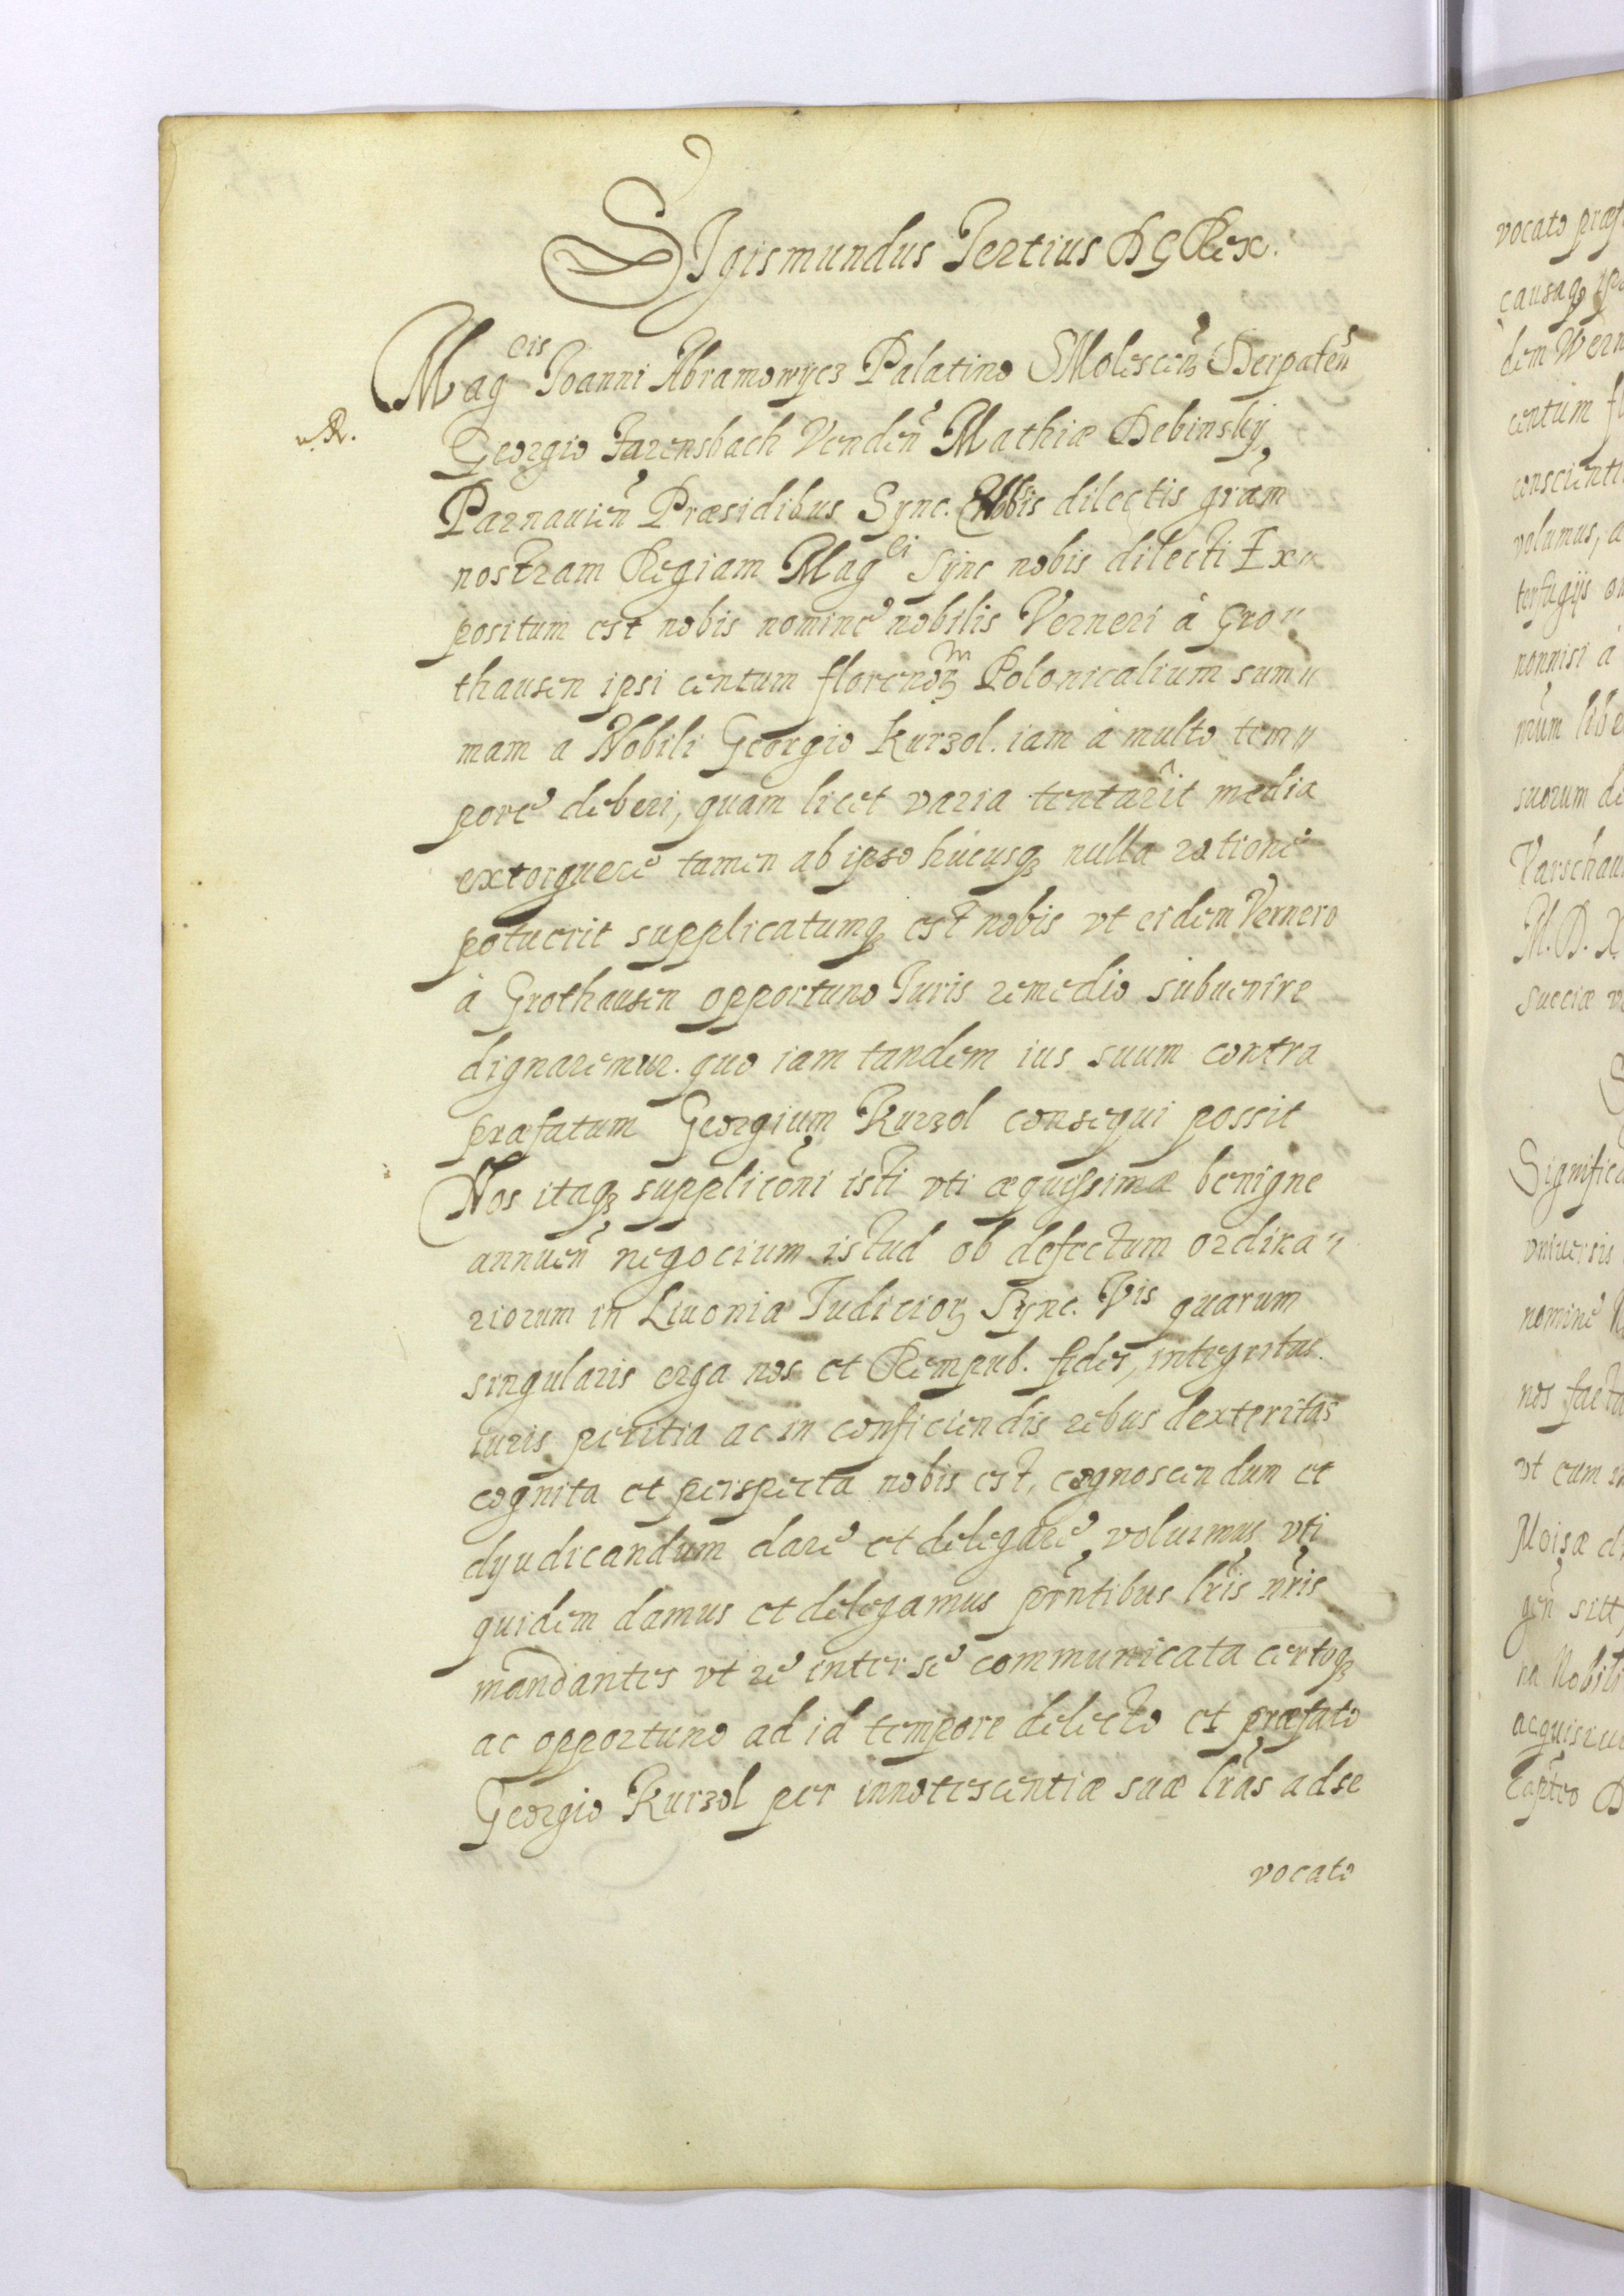 SIgismundus Tertius D G Rex.
Mag^cis Joanni Abramowycz Palatino SMolescen̄ Derpaten̄
Georgio Farensbach Venden̄ Mathiæ Debinskÿ
Parnauien̄ Præsidibus Sync. Nobis dilectis grãm
nostram Regiam Mag^ci Sync nobis dilecti Ex〃
positum est nobis nomine nobilis Verneri à Gro〃
thausen ipsi centum florenoꝝ^m Polonicalium sum〃
mam a Nobili Georgio Kurzol. iam à multo tem〃
pore deberi, quam licet varia tentarît media
extorquere tamen ab ipso hucusqꝫ nulla ratione
potuerit supplicatumqꝫ est nobis vt eidem Vernero
à Grothausen opportuno Iuris remedio subuenire
dignaremur. quo iam tandem ius suum contra
præfatum Georgium Kurzol consequi possit
Nos itaqꝫ supplicõni isti vti æquissimæ benigne
annuen̄ negocium istud ob defectum ordina〃
riorum in Liuonia Iudicioꝝ Sync. Vis quarum
singularis erga nos et Rempub. fides, integritas.
iuris peritia ac in conficiendis rebus dexteritas
cognita et perspecta nobis est, cognoscendum et
dyudicandum dare et delegare voluimus vti
quidem damus et delegamus prñtibus lr̃is nr̃is
mandantes vt re inter se communicata certoqꝫ
ac opportuno ad id tempore delecto et præfato
Georgio Kurzol per innotescentiæ suæ lr̃as ad se
vocato
vocato præf
causaqꝫ
dem Wern
centum fl
conscienti
volumus, a
terfugijs
nonnisi a
suorum de
Varschau
M. D. X
Sueciæ
Significa
vniuersis
nomine
nos factu
vt cum
Moisæ
na Nobili